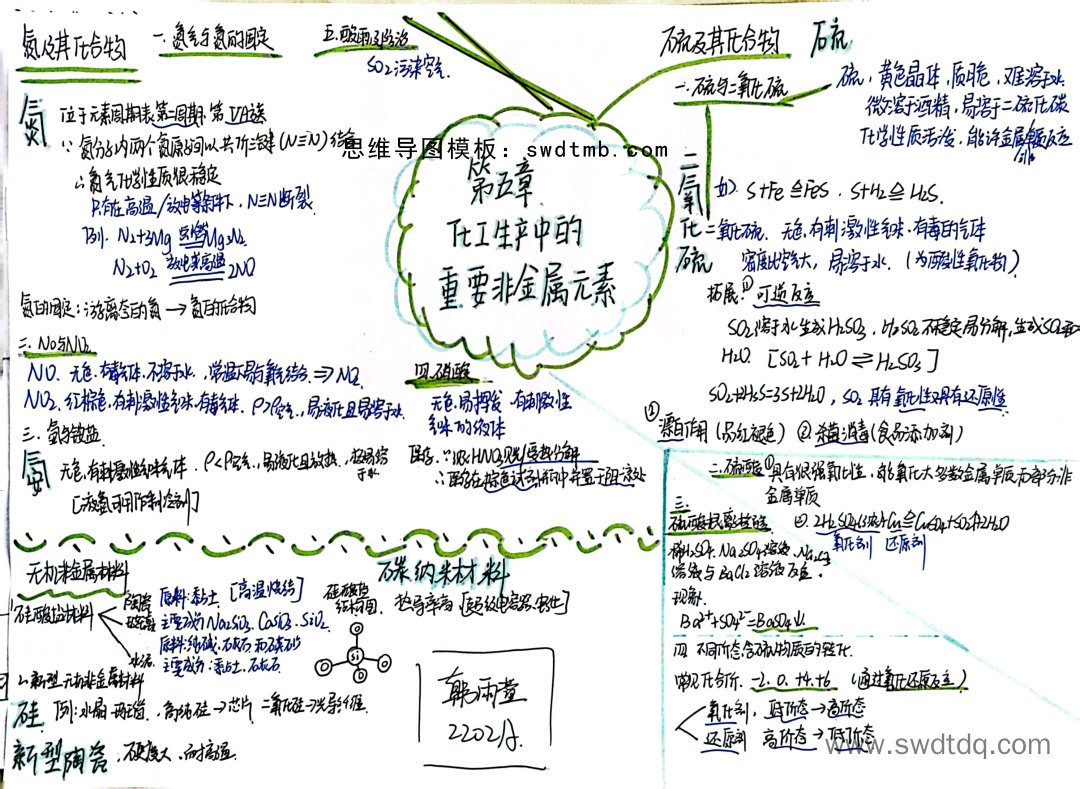 氮及其化合物
一.氮气与氮的固定
氮
位于元素周期表第二周期,第VA族
∵氮分子内两个氮原子间以共价三键(N≡N)结合
∴氮气化学性质很稳定
只有在高温/放电等条件下,N≡N断裂.
例. N₂+3Mg 点燃 Mg₃N₂
N₂+O₂ 放电或高温 2NO
氮的固定:游离态的氮→氮的化合物
二.NO与NO₂
NO.无色.有毒气体.不溶于水,常温下易与氧气结合⇒NO₂
NO₂.红棕色,有刺激性气味.有毒气体.ρ>ρ空气,易液化且易溶于水.
三.氨与铵盐
氨
无色,有刺激性气味气体.ρ<ρ空气,易液化且放热,极易溶于水
[液氨可用作制冷剂]
四.硝酸
无色.易挥发.有刺激性
气味的液体
保存:∵浓HNO₃见光/受热分解
∴保存在棕色试剂瓶中并置于阴凉处
五.酸雨及防治
SO₂污染空气
思维导图模板:swdtmb.com
第五章
化工生产中的
重要非金属元素
硫及其化合物
一.硫与二氧化硫
硫
硫,黄色晶体,质脆,难溶于水
微溶于酒精,易溶于二硫化碳
化学性质活泼,能许金属单质反应
如) S+Fe≜FeS. S+H₂≜H₂S.
二氧化硫
二氧化硫.无色,有刺激性气味.有毒的气体
密度比空气大,易溶于水.(为酸性氧化物)
拓展:①可逆反应
SO₂溶于水生成H₂SO₃,H₂SO₃不稳定易分解,生成SO₂和
H₂O. [SO₂+H₂O⇌H₂SO₃]
SO₂+2H₂S=3S+2H₂O,SO₂具有氧化性又具有还原性.
②漂白作用(品红褪色) ②杀菌消毒(食品添加剂)
二.硫酸①具有很强氧化性,能氧化大多数金属单质和部分非
金属单质
②.2H₂SO₄(浓)+Cu≜CuSO₄+SO₂↑+2H₂O
氧化剂 还原剂
三.
硫酸根离子检验
稀H₂SO₄.Na₂SO₄溶液.Na₂CO₃
溶液与BaCl₂溶液反应.
现象.
Ba²⁺+SO₄²⁻=BaSO₄↓.
四.不同价态含硫物质的转化.
常见化合价.-2.0.+4.+6 (通过氧化还原反应)
氧化剂,低价态→高价态
还原剂 高价态→低价态
无机非金属材料
1.硅酸盐材料
陶瓷
玻璃
水泥
原料:黏土.[高温烧结]
主要成分Na₂SiO₃.CaSiO₃.SiO₂.
原料:纯碱.石灰石和石英砂
主要成分:黏土.石灰石
硅酸盐
结构图.
Si
碳纳米材料
热导率高[超级电容器.电池]
2.新型无机非金属材料
硅.
例:水晶.玛瑙.高纯硅→芯片 二氧化硅→光导纤维
新型陶瓷.硬度大.耐高温.
韩雨萱
2202班.
www.swdtdq.com